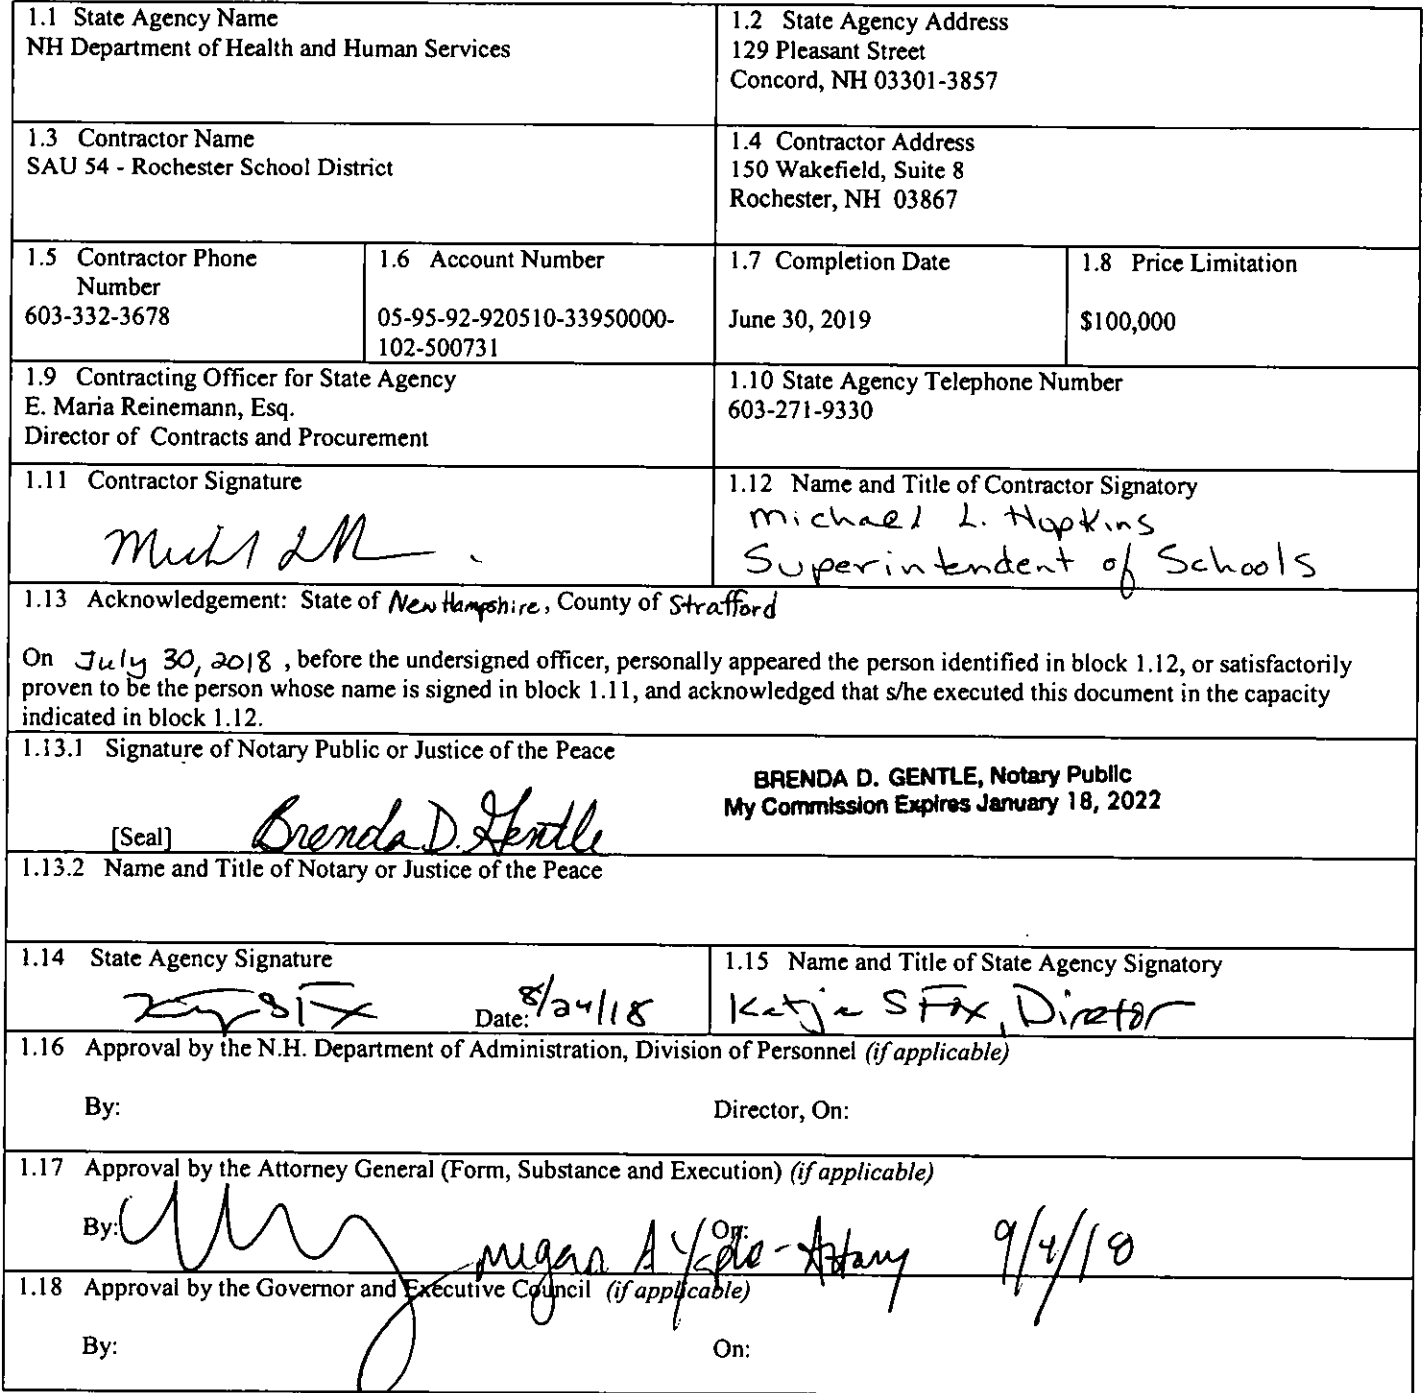 1.1 State Agency Name
NH Department of Health and Human Services
1.2 State Agency Address
129 Pleasant Street
Concord, NH 03301-3857
1.3 Contractor Name
SAU 54 - Rochester School District
1.4 Contractor Address
150 Wakefield, Suite 8
Rochester, NH 03867
1.5 Contractor Phone
Number
603-332-3678
1.6 Account Number
05-95-92-920510-33950000-
102-500731
1.7 Completion Date
June 30, 2019
1.8 Price Limitation
$100,000
1.9 Contracting Officer for State Agency
E. Maria Reinemann, Esq.
Director of Contracts and Procurement
1.10 State Agency Telephone Number
603-271-9330
1.11 Contractor Signature
1.12 Name and Title of Contractor Signatory
Michael L. Hopkins
Superintendent of Schools
1.13 Acknowledgement: State of New Hampshire, County of Strafford
On July 30, 2018, before the undersigned officer, personally appeared the person identified in block 1.12, or satisfactorily
proven to be the person whose name is signed in block 1.11, and acknowledged that s/he executed this document in the capacity
indicated in block 1.12.
1.13.1 Signature of Notary Public or Justice of the Peace
BRENDA D. GENTLE, Notary Public
My Commission Expires January 18, 2022
[Seal] Brenda D. Gentle
1.13.2 Name and Title of Notary or Justice of the Peace
1.14 State Agency Signature
Date: 8/24/18
1.15 Name and Title of State Agency Signatory
Katja S Fox, Director
1.16 Approval by the N.H. Department of Administration, Division of Personnel (if applicable)
By: Director, On:
1.17 Approval by the Attorney General (Form, Substance and Execution) (if applicable)
By: On: 9/4/18
1.18 Approval by the Governor and Executive Council (if applicable)
By: On: